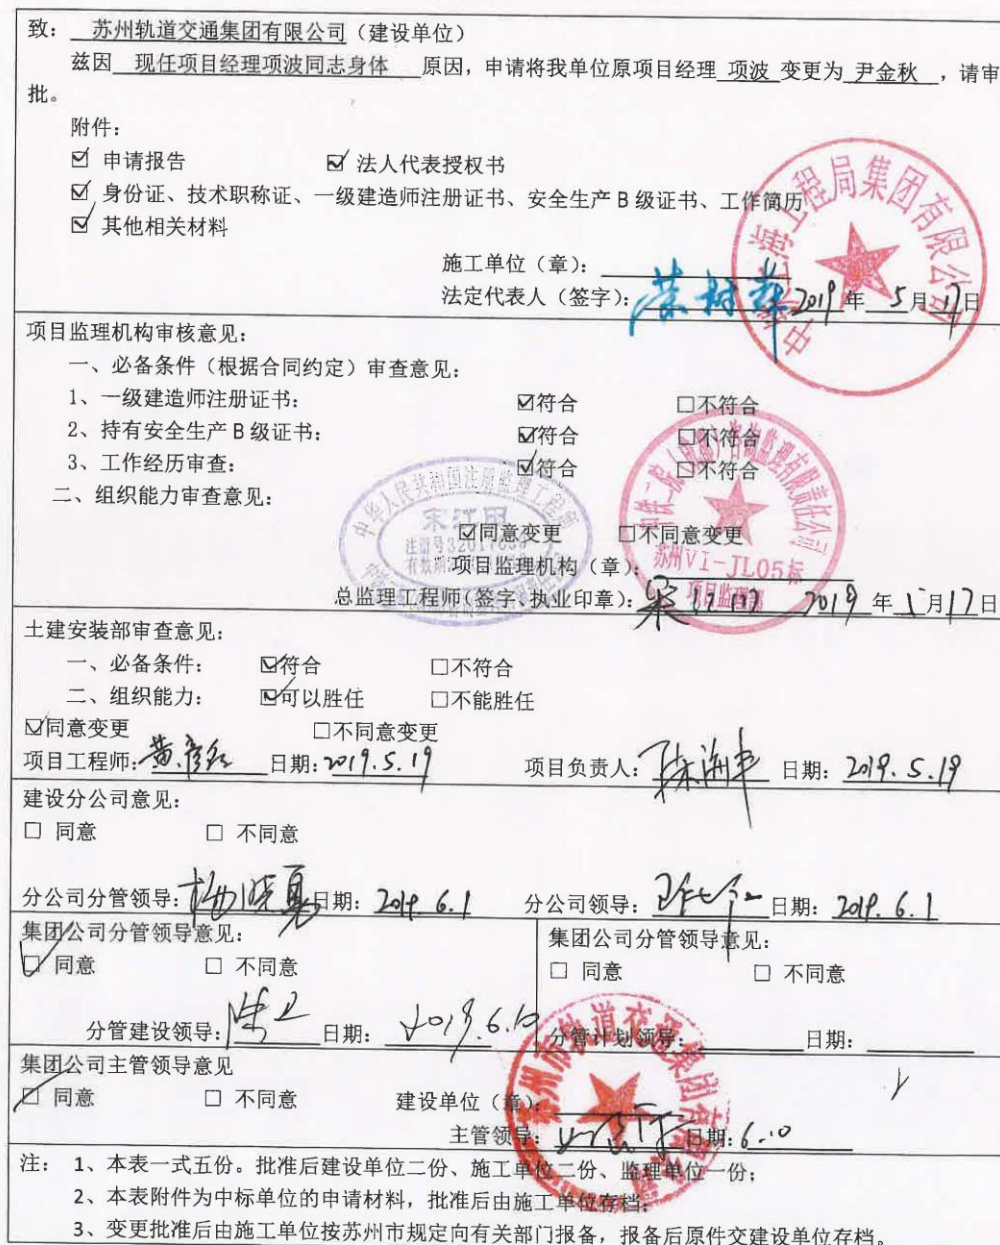 致：苏州轨道交通集团有限公司（建设单位）
兹因 现任项目经理项波同志身体 原因，申请将我单位原项目经理 项波 变更为 尹金秋 ，请审
批。
附件：
☑ 申请报告 ☑ 法人代表授权书
☑ 身份证、技术职称证、一级建造师注册证书、安全生产 B 级证书、工作简历
☑ 其他相关材料
施工单位（章）：
法定代表人（签字）： 2019 年 5 月 17 日
项目监理机构审核意见：
一、必备条件（根据合同约定）审查意见：
1、一级建造师注册证书： ☑符合 □不符合
2、持有安全生产 B 级证书： ☑符合 □不符合
3、工作经历审查： ☑符合 □不符合
二、组织能力审查意见：
☑同意变更 □不同意变更
项目监理机构（章）：
总监理工程师（签字、执业印章）： 2019 年 5 月 17 日
中华人民共和国注册监理工程师
苏州VI-JL05标
项目监理部
土建安装部审查意见：
一、必备条件： ☑符合 □不符合
二、组织能力： ☑可以胜任 □不能胜任
☑同意变更 □不同意变更
项目工程师： 日期：2019.5.19 项目负责人： 日期：2019.5.19
建设分公司意见：
□ 同意 □ 不同意
分公司分管领导：杨晓夏 日期：2019.6.1 分公司领导： 日期：2019.6.1
集团公司分管领导意见：
☑ 同意 □ 不同意
分管建设领导： 日期：2019.6.10
集团公司分管领导意见：
□ 同意 □ 不同意
分管计划领导： 日期：
集团公司主管领导意见
☑ 同意 □ 不同意 建设单位（章）：
主管领导： 日期：6.10
苏州市轨道交通集团有限公司
注： 1、本表一式五份。批准后建设单位二份、施工单位二份、监理单位一份；
2、本表附件为中标单位的申请材料，批准后由施工单位存档；
3、变更批准后由施工单位按苏州市规定向有关部门报备，报备后原件交建设单位存档。